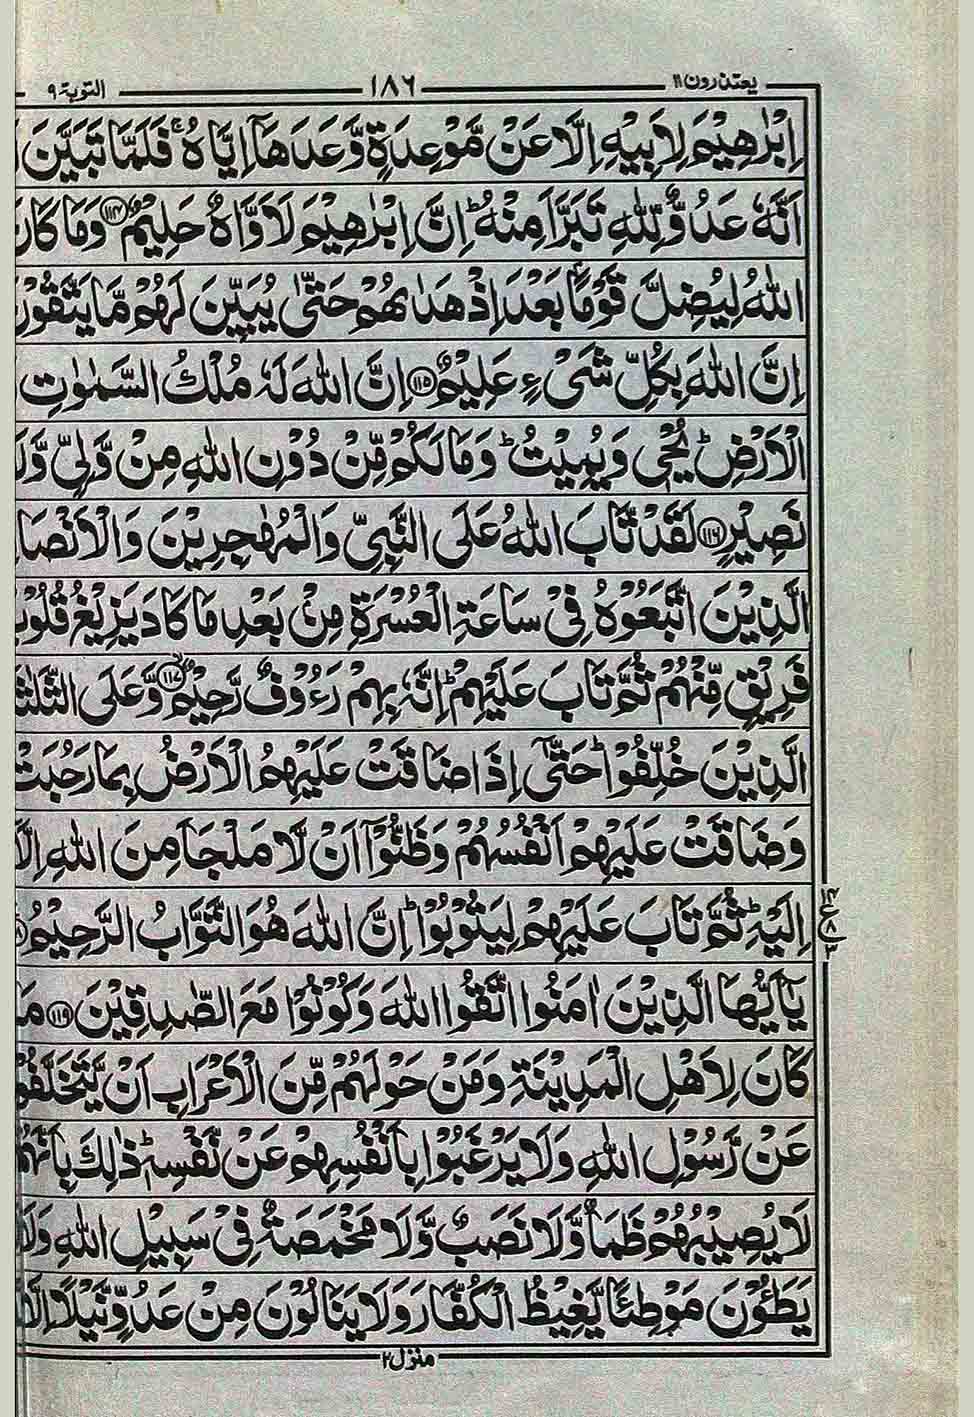 يعتذرون ۱۱ ۱۸۶ التوبة ۹
اِبْرٰهِيْمَ لِاَبِيْهِ اِلَّا عَنْ مَّوْعِدَةٍ وَّعَدَهَاۤ اِيَّاهُ ۚ فَلَمَّا تَبَيَّنَ
اَنَّهٗ عَدُوٌّ لِّلّٰهِ تَبَرَّاَ مِنْهُ ؕ اِنَّ اِبْرٰهِيْمَ لَاَوَّاهٌ حَلِيْمٌ ۱۱۴ وَمَا كَانَ
اللّٰهُ لِيُضِلَّ قَوْمًۢا بَعْدَ اِذْ هَدٰىهُمْ حَتّٰى يُبَيِّنَ لَهُمْ مَّا يَتَّقُوْ
اِنَّ اللّٰهَ بِكُلِّ شَىْءٍ عَلِيْمٌ ۱۱۵ اِنَّ اللّٰهَ لَهٗ مُلْكُ السَّمٰوٰتِ
الْاَرْضِ ؕ يُحْىٖ وَيُمِيْتُ ؕ وَمَا لَكُمْ مِّنْ دُوْنِ اللّٰهِ مِنْ وَّلِىٍّ وَّلَ
نَصِيْرٍ ۱۱۶ لَقَدْ تَّابَ اللّٰهُ عَلَى النَّبِىِّ وَالْمُهٰجِرِيْنَ وَالْاَنْصَا
الَّذِيْنَ اتَّبَعُوْهُ فِىْ سَاعَةِ الْعُسْرَةِ مِنْۢ بَعْدِ مَا كَادَ يَزِيْغُ قُلُوْبُ
فَرِيْقٍ مِّنْهُمْ ثُمَّ تَابَ عَلَيْهِمْ ؕ اِنَّهٗ بِهِمْ رَءُوْفٌ رَّحِيْمٌ ۱۱۷ وَّعَلَى الثَّلٰثَ
الَّذِيْنَ خُلِّفُوْا ؕ حَتّٰۤى اِذَا ضَاقَتْ عَلَيْهِمُ الْاَرْضُ بِمَا رَحُبَتْ
وَضَاقَتْ عَلَيْهِمْ اَنْفُسُهُمْ وَظَنُّوْۤا اَنْ لَّا مَلْجَاَ مِنَ اللّٰهِ اِلَّا
اِلَيْهِ ؕ ثُمَّ تَابَ عَلَيْهِمْ لِيَتُوْبُوْا ؕ اِنَّ اللّٰهَ هُوَ التَّوَّابُ الرَّحِيْمُ
يٰۤاَيُّهَا الَّذِيْنَ اٰمَنُوا اتَّقُوا اللّٰهَ وَكُوْنُوْا مَعَ الصّٰدِقِيْنَ ۱۱۹ مَا
كَانَ لِاَهْلِ الْمَدِيْنَةِ وَمَنْ حَوْلَهُمْ مِّنَ الْاَعْرَابِ اَنْ يَّتَخَلَّفُوْ
عَنْ رَّسُوْلِ اللّٰهِ وَلَا يَرْغَبُوْا بِاَنْفُسِهِمْ عَنْ نَّفْسِهٖ ؕ ذٰلِكَ بِاَنَّهُمْ
لَا يُصِيْبُهُمْ ظَمَاٌ وَّلَا نَصَبٌ وَّلَا مَخْمَصَةٌ فِىْ سَبِيْلِ اللّٰهِ وَلَا
يَطَـُٔوْنَ مَوْطِئًا يَّغِيْظُ الْكُفَّارَ وَلَا يَنَالُوْنَ مِنْ عَدُوٍّ نَّيْلًا اِلَّا
منزل ۲